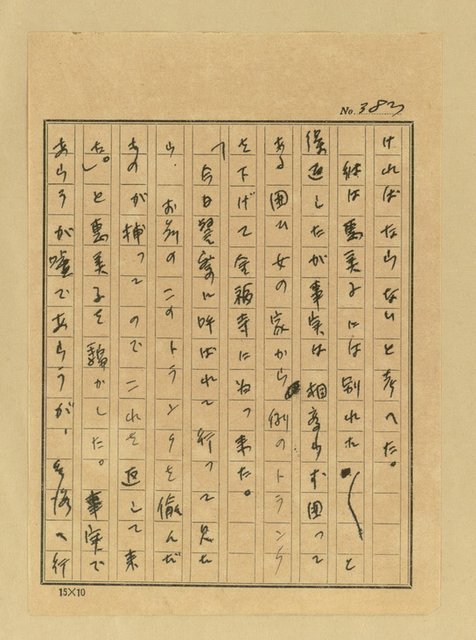 No. 383
ければならないと考へた。
は惠美子には別れた〳〵と
繰返したが事実は相変らず囲って
ある囲ひ女の家から例のトランク
を下げて金福寺に つ来た。
「今日警察に呼ばれて行って見た
ら、お前のこのトランクを偸んだ
ものが捕ってのでこれを返して来
た。」と惠美子を騙かした。事実で
あらうが嘘であらうが、 へ行
15×10